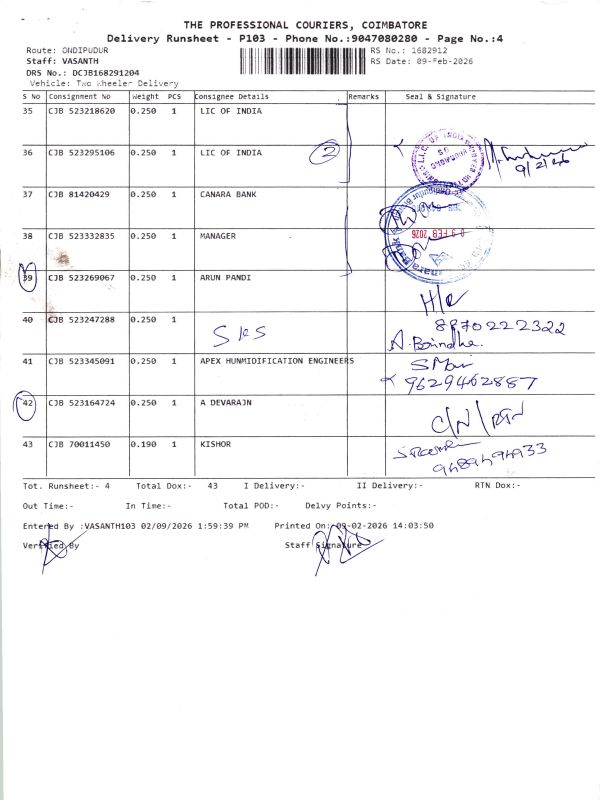 THE PROFESSIONAL COURIERS, COIMBATORE
Delivery Runsheet - P103 - Phone No.:9047080280 - Page No.:4
Route: ONDIPUDUR RS No.: 1682912
Staff: VASANTH RS Date: 09-Feb-2026
DRS No.: DCJB168291204
Vehicle: Two Wheeler Delivery
S No Consignment No Weight PCS Consignee Details Remarks Seal & Signature
35 CJB 523218620 0.250 1 LIC OF INDIA
36 CJB 523295106 0.250 1 LIC OF INDIA 2
9/2/26
37 CJB 81420429 0.250 1 CANARA BANK
38 CJB 523332835 0.250 1 MANAGER
09 FEB 2026
39 CJB 523269067 0.250 1 ARUN PANDI
H/C
40 CJB 523247288 0.250 1 SKS
8870222322
41 CJB 523345091 0.250 1 APEX HUNMIDIFICATION ENGINEERS
9629462887
42 CJB 523164724 0.250 1 A DEVARAJN
C/N/RTN
43 CJB 70011450 0.190 1 KISHOR
9489494933
Tot. Runsheet:- 4 Total Dox:- 43 I Delivery:- II Delivery:- RTN Dox:-
Out Time:- In Time:- Total POD:- Delvy Points:-
Entered By :VASANTH103 02/09/2026 1:59:39 PM Printed On: 09-02-2026 14:03:50
Verified By Staff Signature